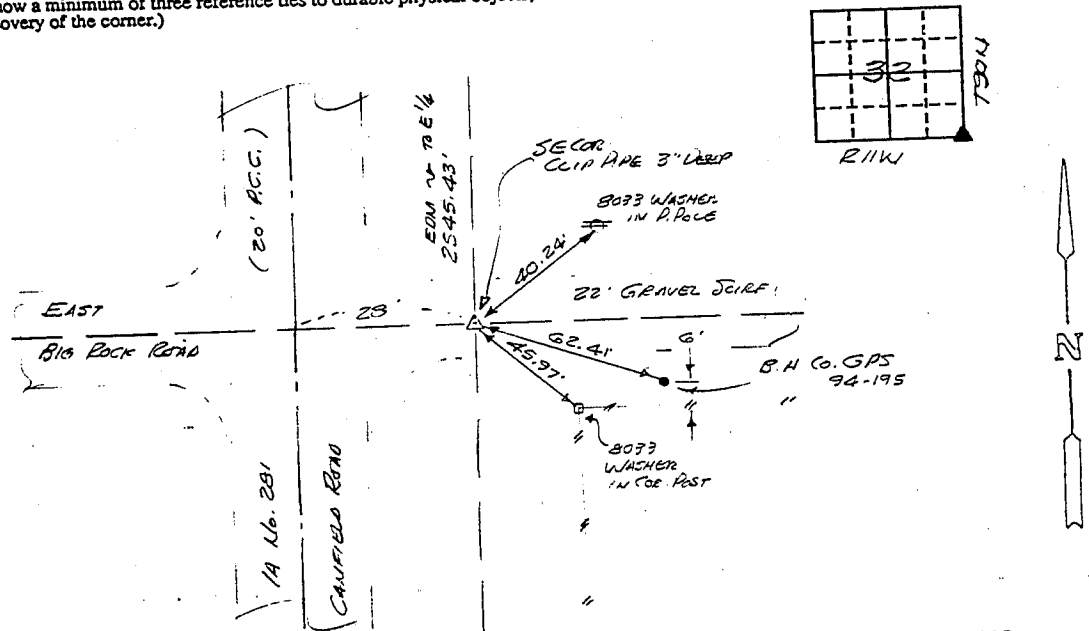 now a minimum of three reference ties to durable physical objects,
overy of the corner.)
32
T90N
R11W
(20' P.C.C.)
EDM ~ TO E 1/4
2545.43'
SE COR
CLIP PIPE 3" DEEP
8033 WASHER
IN P. POLE
40.24'
22' GRAVEL SURF.
EAST
BIG ROCK ROAD
28'
62.41'
6'
45.97'
B.H Co. GPS
94-195
8033
WASHER
IN COR. POST
IA No. 281
CANFIELD ROAD
N